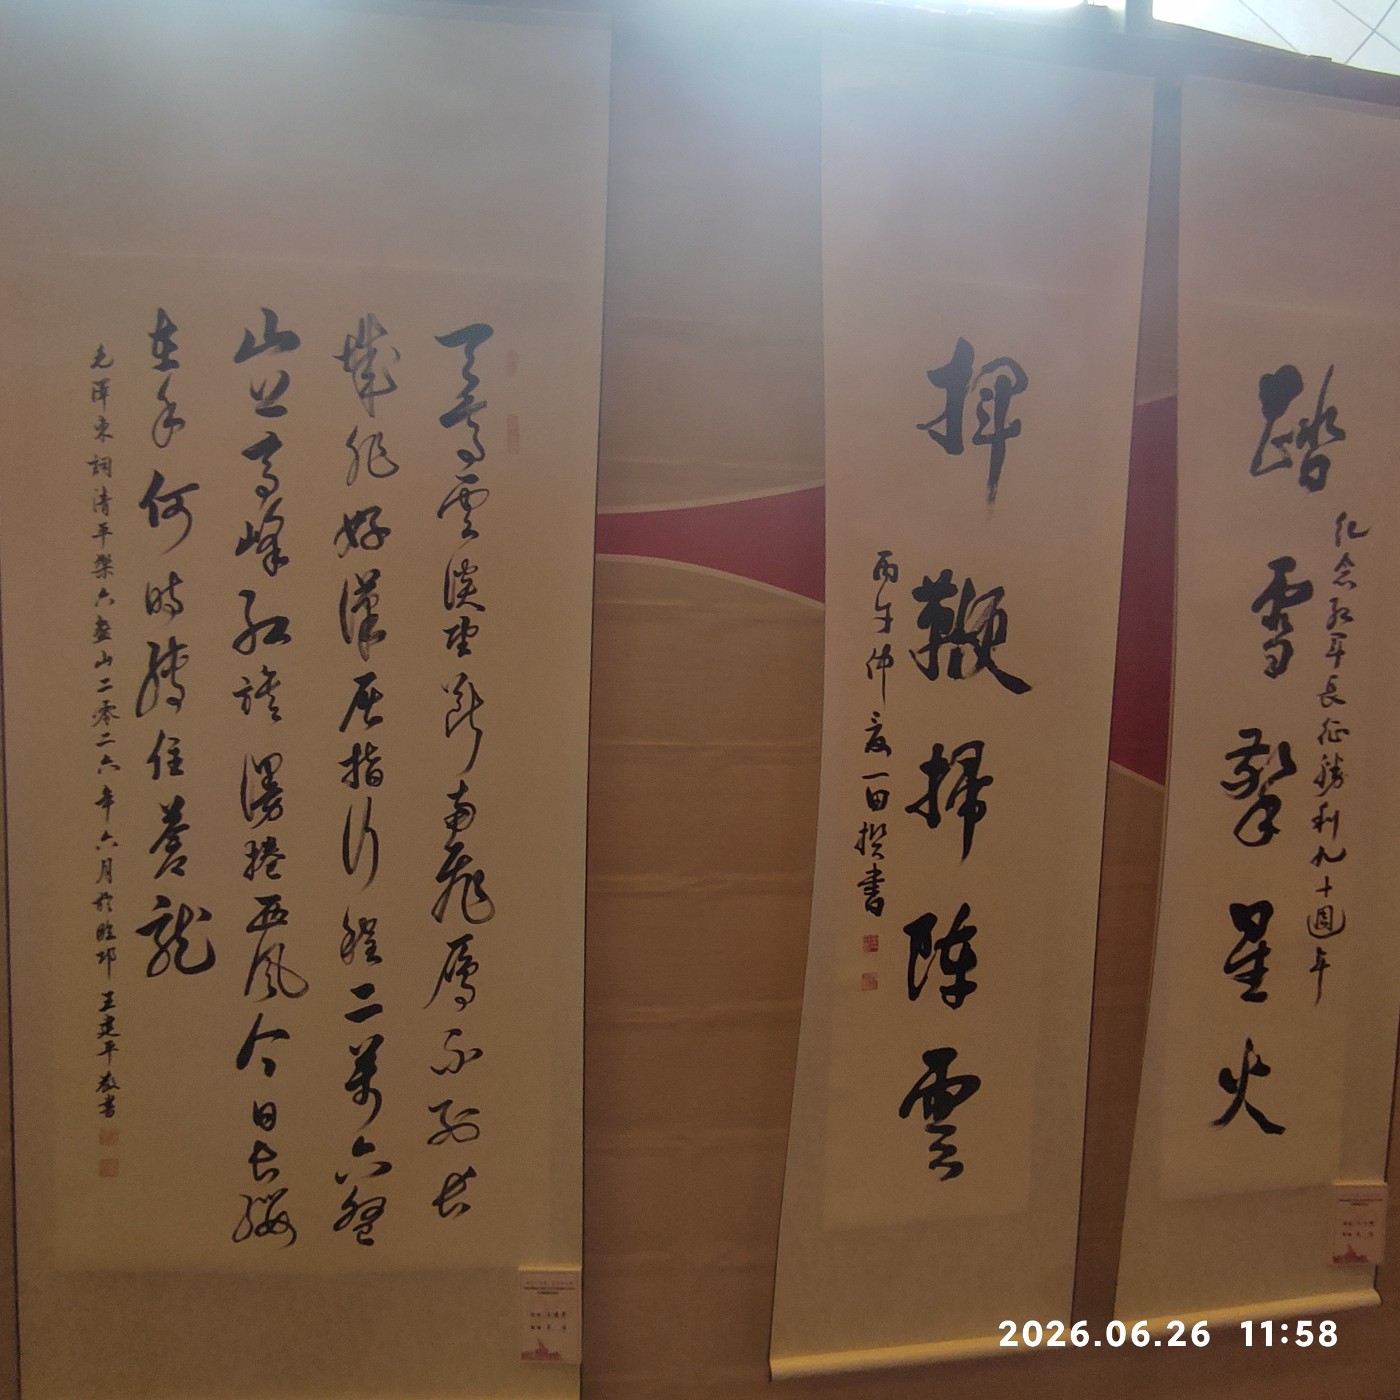 紀念紅軍長征勝利九十週年
踏雪擎星火
揮鞭掃陣雲
丙午仲夏一田撰書
天高雲淡望斷南飛雁不到長
城非好漢屈指行程二萬六盤
山上高峰紅旗漫捲西風今日長纓
在手何時縛住蒼龍
毛澤東詞清平樂六盤山二零二六年六月於臨邛王建平敬書
2026.06.26 11:58